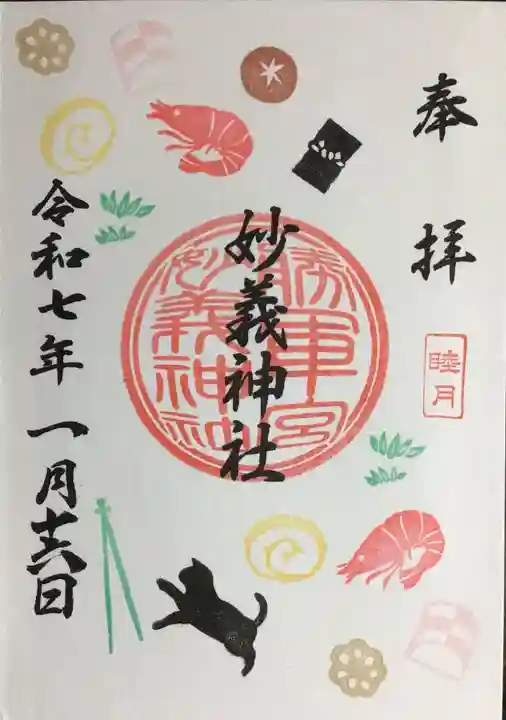 奉拝
睦月
妙義神社
勝軍宮
妙義神社
令和七年 一月十六日